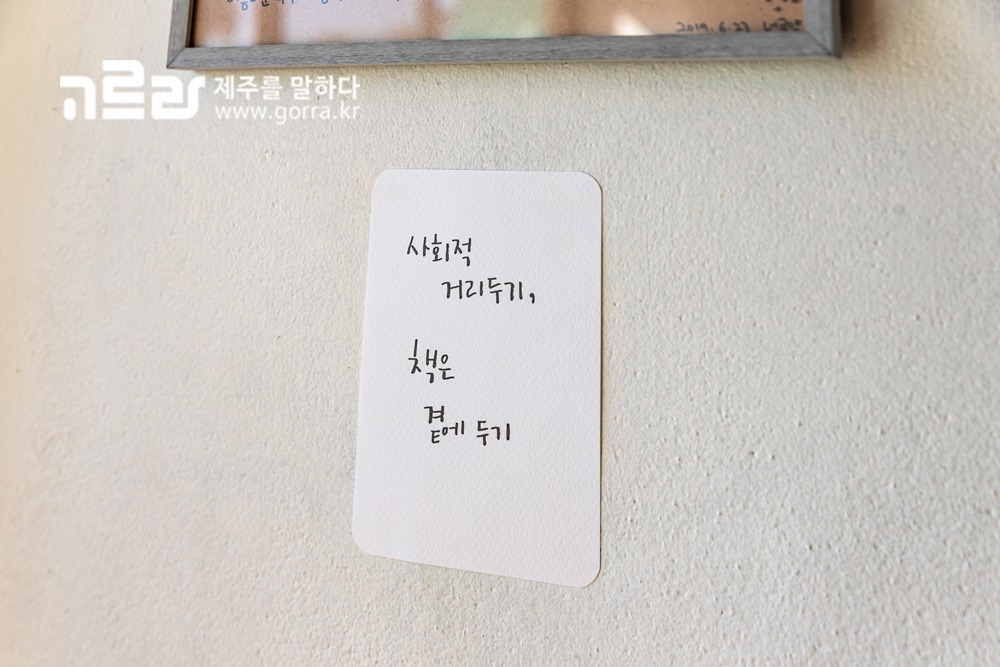 2019. 6. 23
고르라 제주를 말하다
www.gorra.kr
사회적
거리두기,
책은
곁에 두기